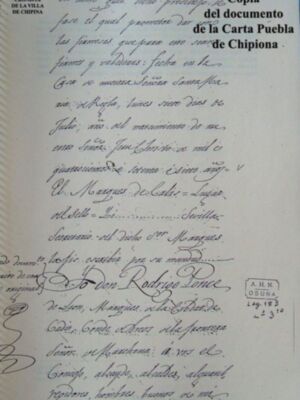 DE LA VILLA
DE CHIPINA
Copia
del documento
de la Carta Puebla
de Chipiona
fase el qual prometer dar
las franezas que para ello
firmes y valederas: fecha en la
Casa de nuestra Señora Santa Ma-
ria de Regla, lunes siete dias de
Julio; año del nacimiento de nu-
estro Señor Jesu Christo de mil e
quatrocientos e setenta e siete años
El Marques de Cadiz = Lugar
del sello = Sevilla
Secretario del dicho Sor. Marques
la fis escribir por su mandado
Yo Don Rodrigo Ponce
de Leon, Marques de la Cibdad de
Cadiz, Conde de Arcos de la frontera
Señor de Marchena: à vos el
Consejo, alcayde, alcaldes, alguacil
regidores, hombres buenos de mi
A. H. N.
OSUNA
Leg. 183